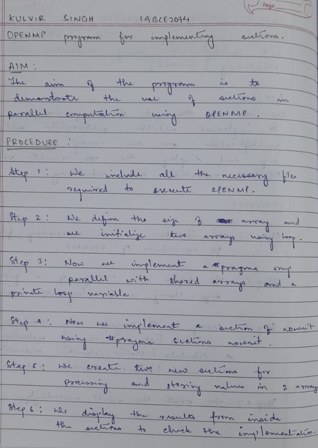 Page
KULVIR SINGH
OPENMP program for implementing sections.
AIM :
The aim of the program is to
demonstrate the use of sections in
parallel computation using OPENMP.
PROCEDURE :
Step 1 : We include all the necessary files
required to execute OPENMP.
Step 2 : We define the size of array and
we initialize two arrays using loop.
Step 3 : Now we implement a #pragma omp
parallel with shared arrays and a
private loop variable.
Step 4 : Now we implement a section of nowait
using #pragma sections nowait.
Step 5 : We create two new sections for
processing and storing values in 2 array
Step 6 : We display the results from inside
the sections to check the implementation.